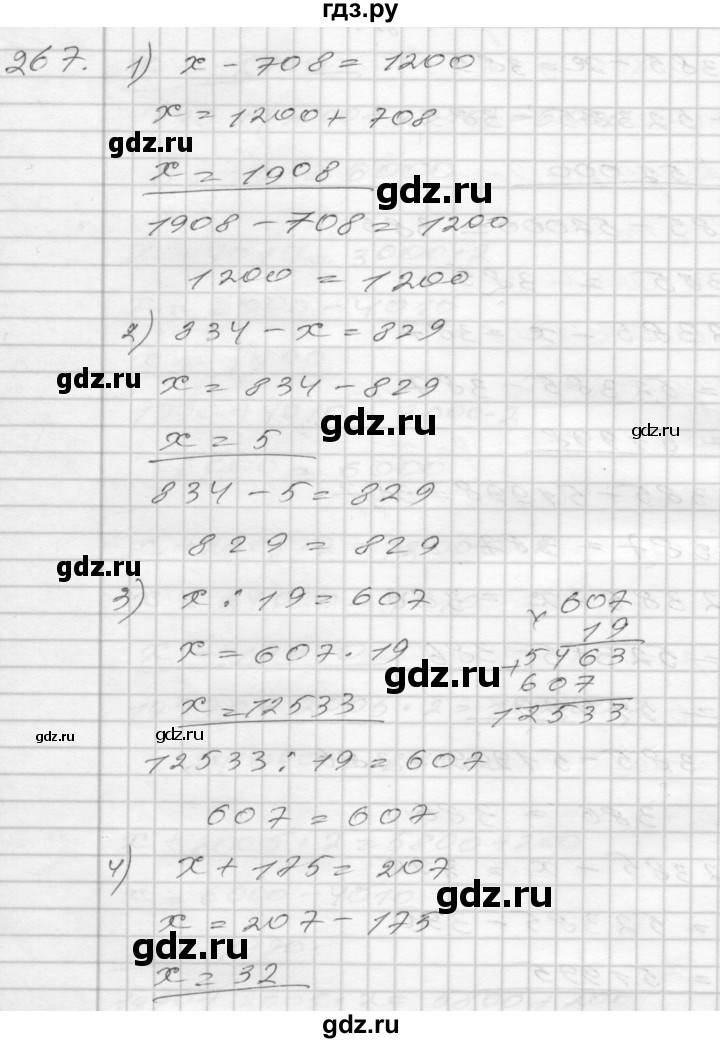 гдз.ру
267. 1) x - 708 = 1200
x = 1200 + 708
gdz.ru
x = 1908
gdz.ru
1908 - 708 = 1200
1200 = 1200
2) 834 - x = 829
gdz.ru
x = 834 - 829
gdz.ru
gdz.ru
x = 5
834 - 5 = 829
829 = 829
gdz.ru
3) x : 19 = 607
x = 607 · 19
gdz.ru
x = 12533
× 607
19
+ 5463
607
12533
gdz.ru
gdz.ru
12533 : 19 = 607
607 = 607
4) x + 175 = 207
gdz.ru
x = 207 - 175
gdz.ru
x = 32
gdz.ru
gdz.ru